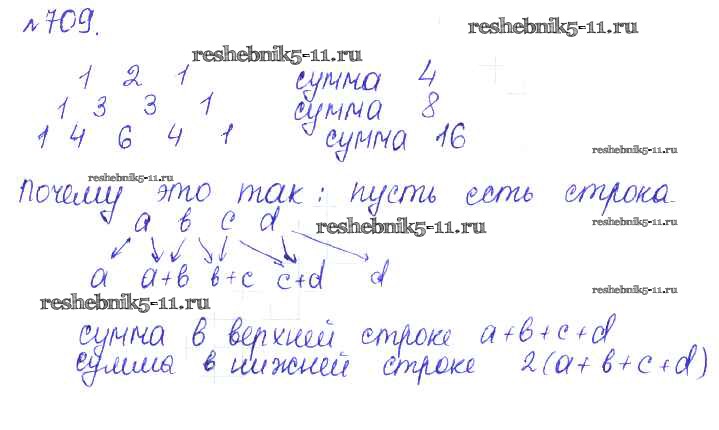 №709.
reshebnik5-11.ru
reshebnik5-11.ru
1 2 1 сумма 4
1 3 3 1 сумма 8
1 4 6 4 1 сумма 16
reshebnik5-11.ru
reshebnik5-11.ru
Почему это так: пусть есть строка
a b c d
reshebnik5-11.ru
reshebnik5-11.ru
a a+b b+c c+d d
reshebnik5-11.ru
reshebnik5-11.ru
сумма в верхней строке a+b+c+d
сумма в нижней строке 2(a+b+c+d)